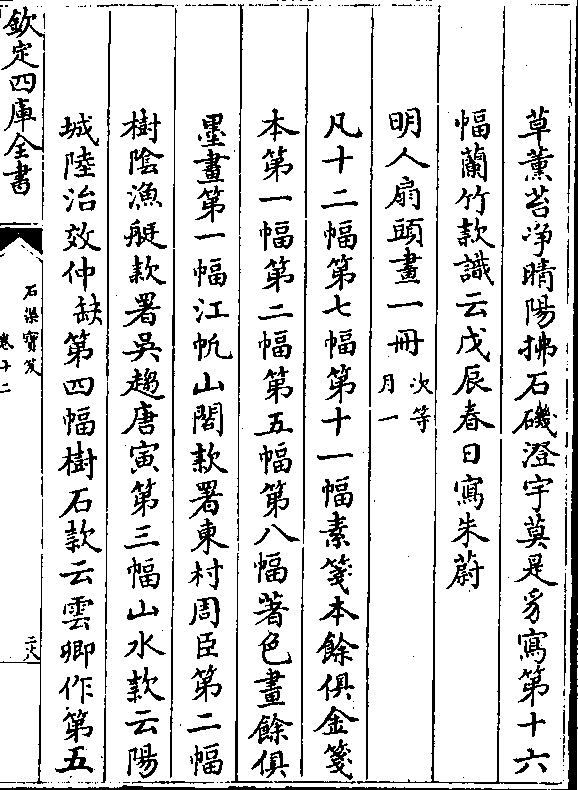 草薰苔净晴陽拂石磯澄宇莫是豸寫第十六
幅蘭竹款識云戊辰春日寫朱蔚
明人扇頭畫一冊
次等
月一
凡十二幅第七幅第十一幅素箋本餘俱金箋
本第一幅第二幅第五幅第八幅著色畫餘俱
墨畫第一幅江帆山閣款署東村周臣第二幅
樹陰漁艇款署吳趨唐寅第三幅山水款云陽
城陸治效仲缺第四幅樹石款云雲卿作第五
欽定四庫全書
石渠寶笈
卷十二